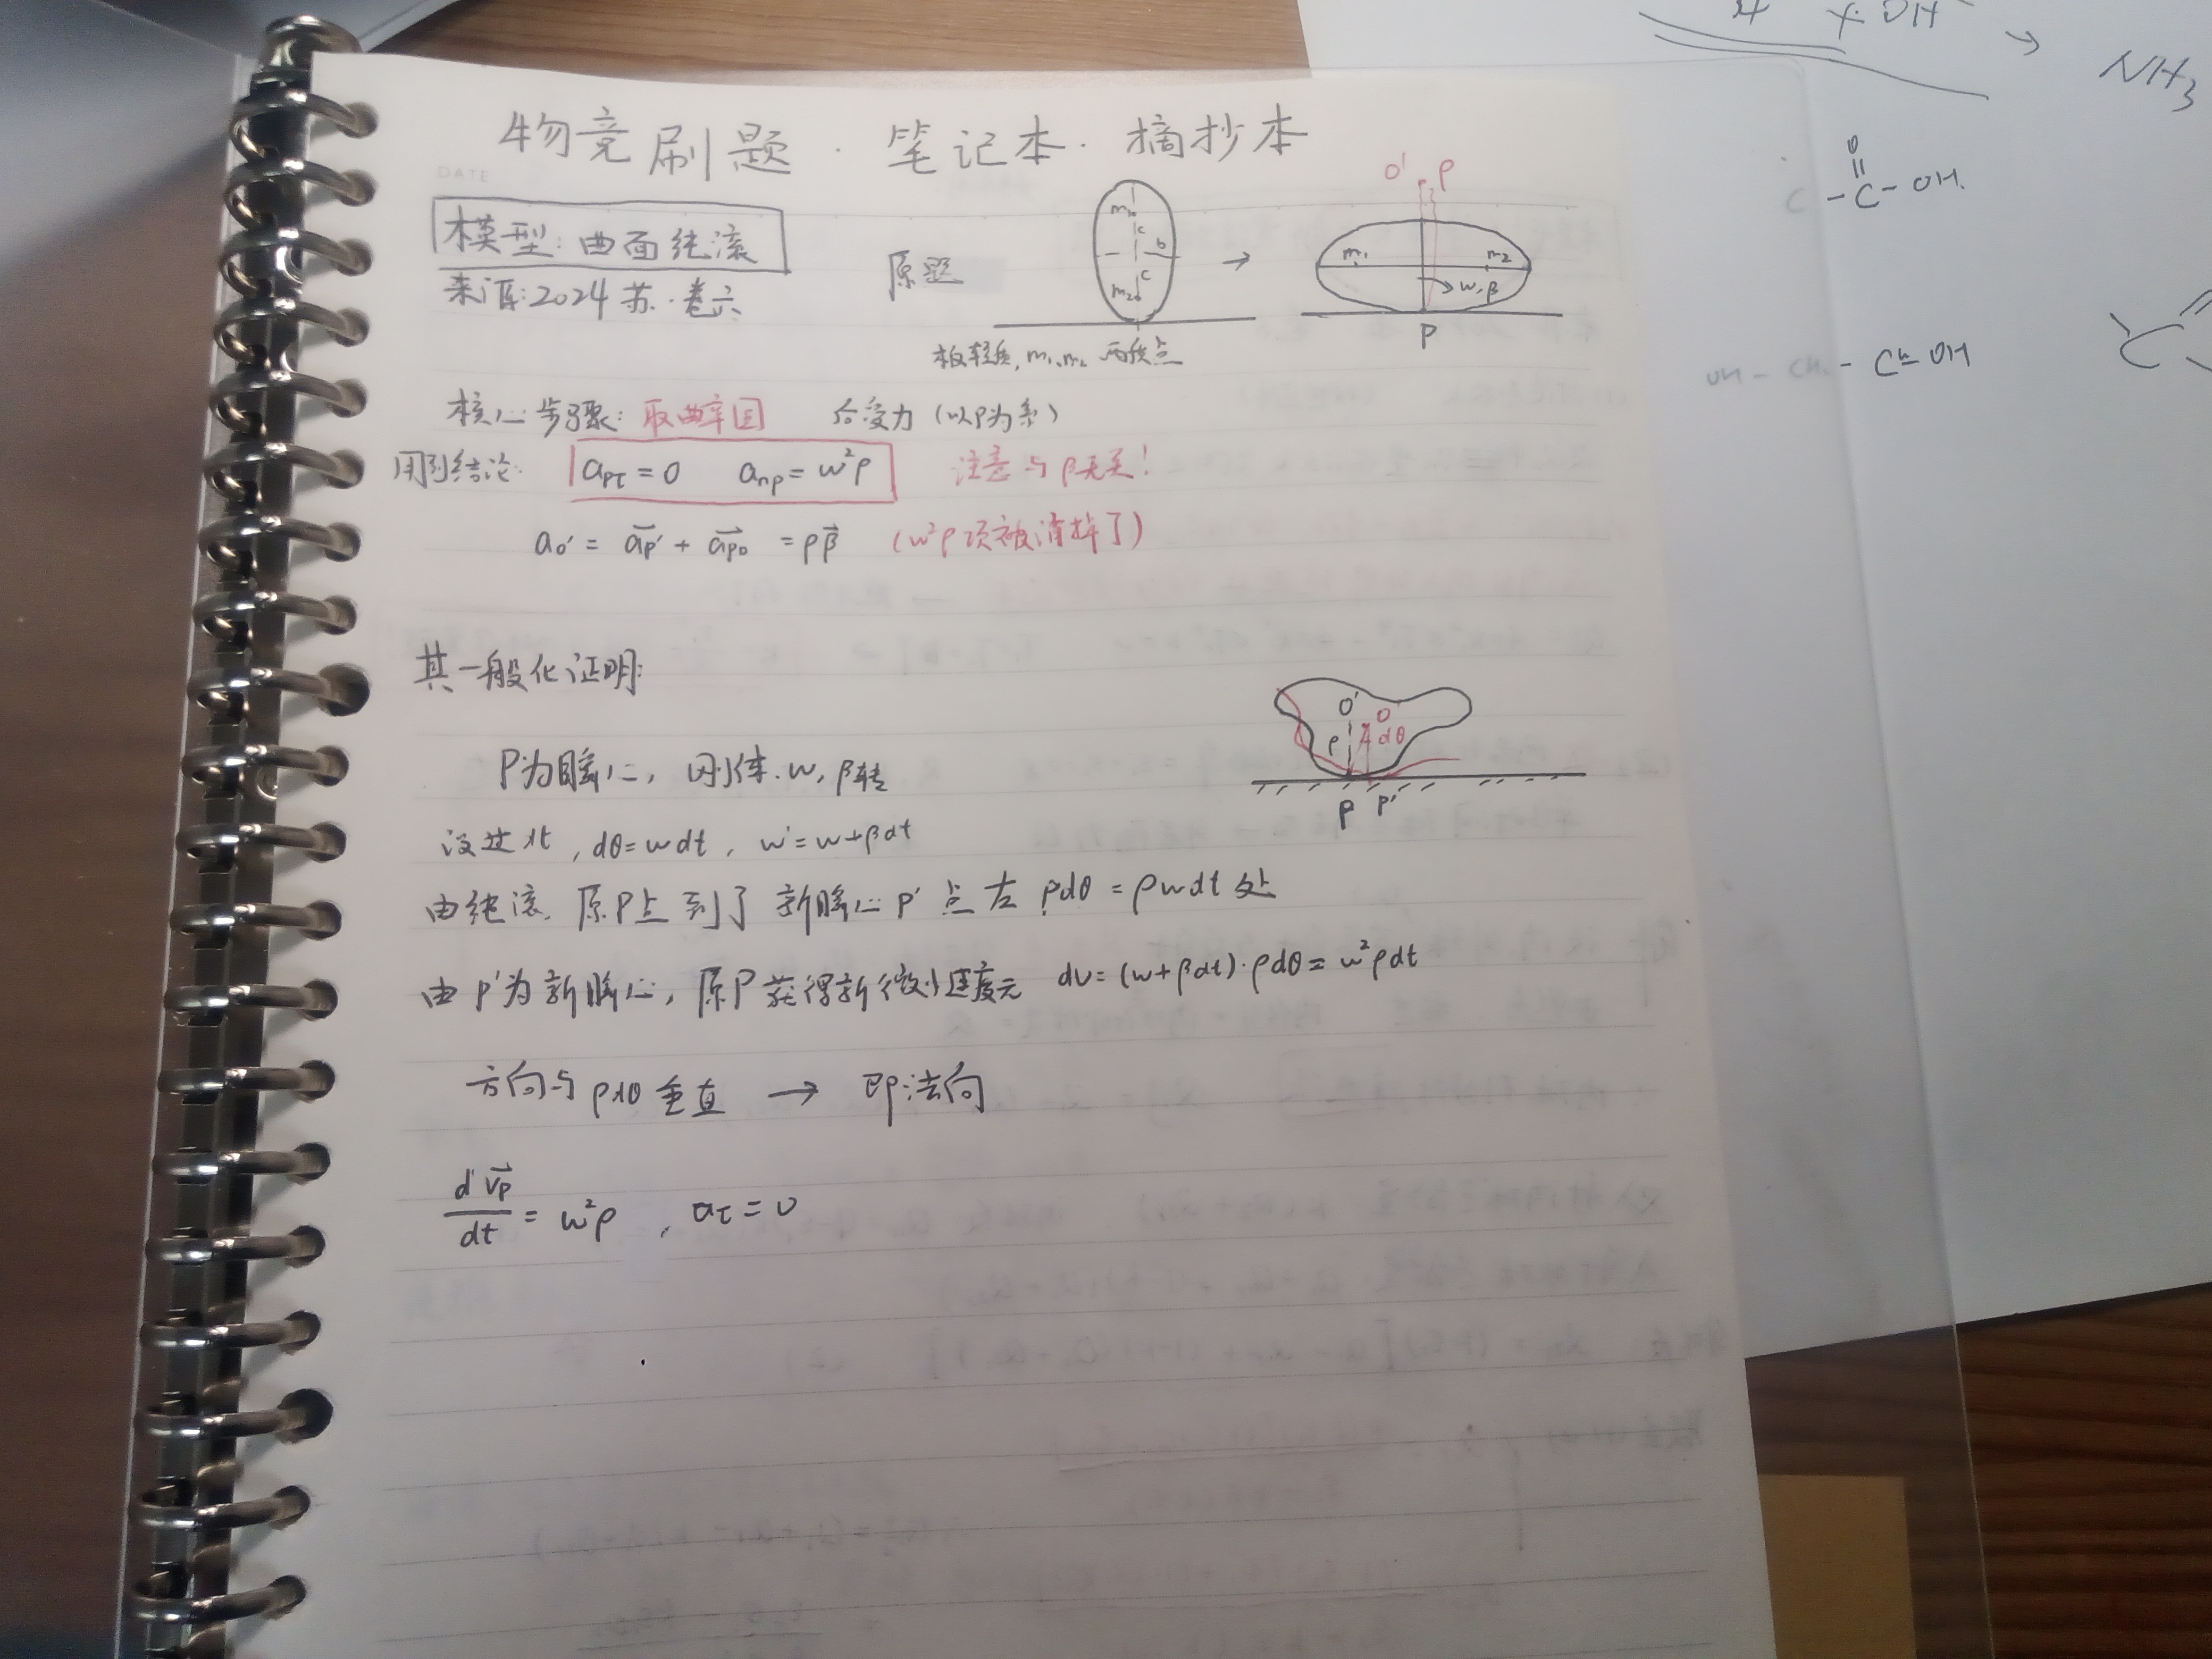 物竞刷题·笔记本·摘抄本
DATE
模型:曲面纯滚
来源:2024苏·卷六
原题
m₁
c
b
c
m₂
板轻质,m₁,m₂两质点
O' ρ
m₁ m₂
w,β
P
核心步骤:取曲率圆 后受力(以P为系)
用到结论: aₚτ=0 aₙₚ=w²ρ 注意与β无关!
aₒ' = aₚ' + aₚₒ = ρβ (w²ρ项被消掉了)
其一般化证明:
O' O
ρ dθ
P P'
P为瞬心,刚体.w,β转
设过dt,dθ=wdt,w'=w+βdt
由纯滚,原P点到了新瞬心P'点左ρdθ=ρwdt处
由P'为新瞬心,原P获得新微小速度元 dv=(w+βdt)·ρdθ=w²ρdt
方向与ρdθ垂直 → 即法向
dvₚ/dt = w²ρ , aτ=0
X·OH
→ NH₃
O
C-C-OH.
OH-CH₂-C=OH